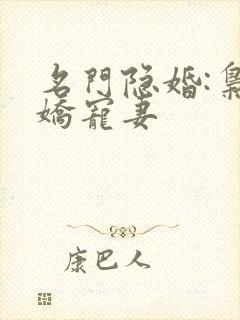 名門隐婚:梟
嬌寵妻
康巴人